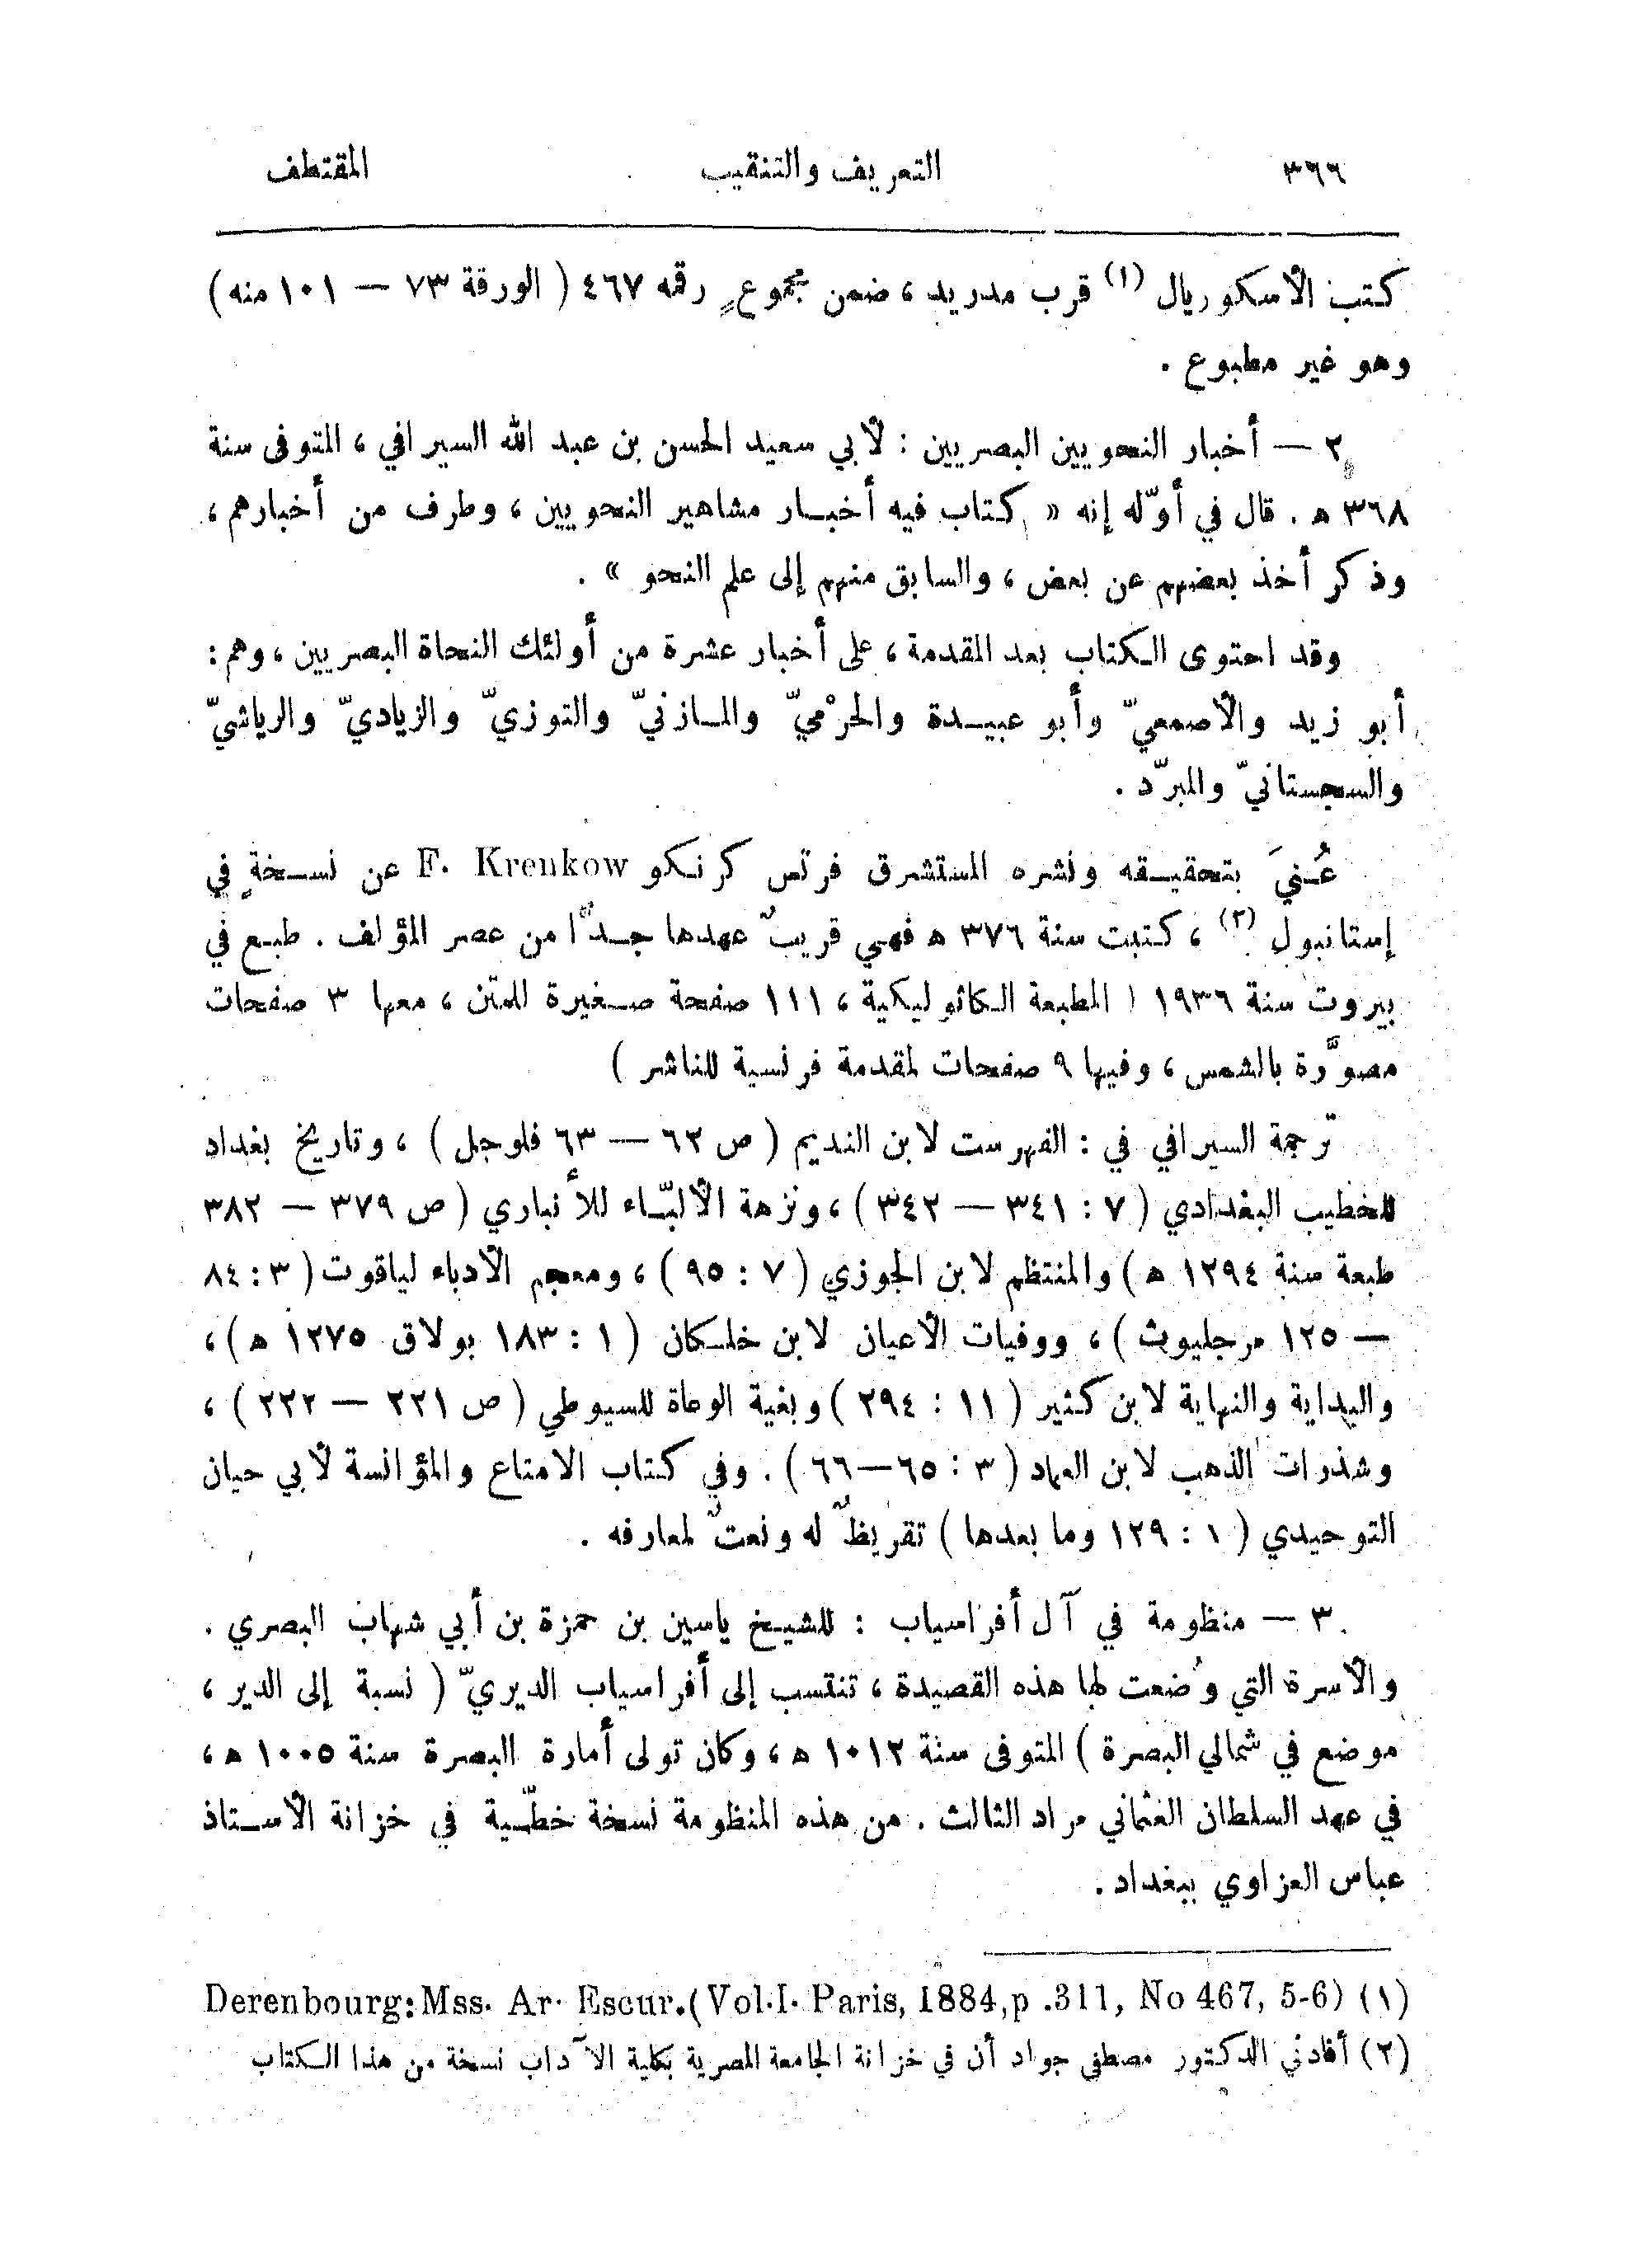 ٣٦٦ التعريف والتنقيب المقتطف
كتب الأسكوريال (١) قرب مدريد ، ضمن مجموعٍ رقمه ٤٦٧ ( الورقة ٧٣ — ١٠١ منه )
وهو غير مطبوع .
٢ — أخبار النحويين البصريين : لأبي سعيد الحسن بن عبد الله السيرافي ، المتوفى سنة
٣٦٨ ه . قال في أوّله إنه « كتاب فيه أخبـار مشاهير النحويين ، وطرف من أخبارهم ،
وذكر أخذ بعضهم عن بعض ، والسابق منهم إلى علم النحو » .
وقد احتوى الكتاب بعد المقدمة ، على أخبار عشرة من أولئك النحاة البصريين ، وهم :
أبو زيد والأصمعيّ وأبو عبيـدة والجرْميّ والمـازنيّ والتوزيّ والزياديّ والرياشيّ
والسجستانيّ والمبرّد .
عُـنيَ بتحقيـقه ونشره المستشرق فرتس كرنـكو F. Krenkow عن نسـخةٍ في
إستانبول (٢) ، كتبت سنة ٣٧٦ ه فهي قريبٌ عهدها جـدًّا من عصر المؤلف . طبـع في
بيروت سنة ١٩٣٦ ( المطبعة الكاثوليكية ، ١١١ صفحة صـغيرة للمتن ، معها ٣ صفحات
مصوَّرة بالشمس ، وفيها ٩ صفحات لمقدمة فرنسية للناشر )
ترجمة السيرافي في : الفهرست لابن النديم ( ص ٦٢ — ٦٣ فلوجل ) ، وتاريخ بغداد
للخطيب البغدادي ( ٧ : ٣٤١ — ٣٤٢ ) ، ونزهة الألبّـاء للأنباري ( ص ٣٧٩ — ٣٨٢
طبعة سنة ١٢٩٤ ه ) والمنتظم لابن الجوزي ( ٧ : ٩٥ ) ، ومعجم الأدباء لياقوت ( ٣ : ٨٤
— ١٢٥ مرجليوث ) ، ووفيات الأعيان لابن خلـكان ( ١ : ١٨٣ بولاق ١٢٧٥ ه ) ،
والبداية والنهاية لابن كثير ( ١١ : ٢٩٤ ) وبغية الوعاة للسيوطي ( ص ٢٢١ — ٢٢٢ ) ،
وشذرات الذهب لابن العماد ( ٣ : ٦٥—٦٦ ) . وفي كتاب الامتاع والمؤانسة لأبي حيان
التوحيدي ( ١ : ١٢٩ وما بعدها ) تقريظٌ له ونعتٌ لمعارفه .
٣ — منظومة في آل أفراسياب : للشيـخ ياسين بن حمزة بن أبي شهاب البصري .
والأسرة التي وُضعت لها هذه القصيدة ، تنتسب إلى أفراسياب الديريّ ( نسبة إلى الدير ،
موضع في شمالي البصرة ) المتوفى سنة ١٠١٢ ه ، وكان تولى أمارة البصرة سنة ١٠٠٥ ه ،
في عهد السلطان العثماني مراد الثالث . من هذه المنظومة نسخة خطّـية في خزانة الأسـتاذ
عباس العزاوي ببغداد .
(١) Derenbourg: Mss. Ar. Escur. (Vol. I. Paris, 1884, p .311, No 467, 5-6)
(٢) أفادني الدكتور مصطفى جواد أن في خزانة الجامعة المصرية بكلية الآداب نسخة من هذا الكتاب